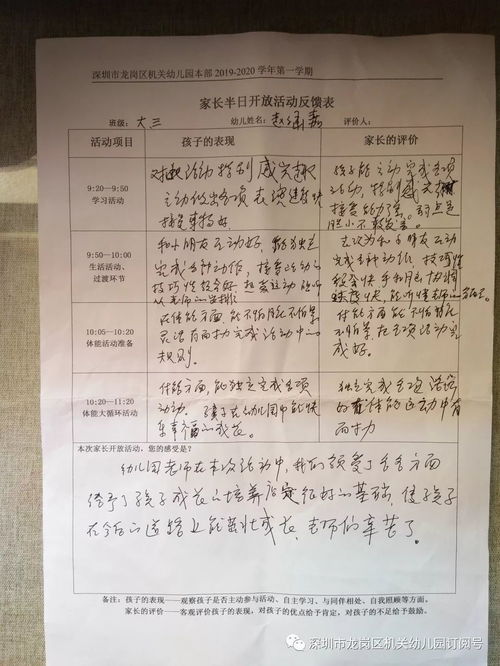 深圳市龙岗区机关幼儿园本部 2019-2020 学年第一学期
家长半日开放活动反馈表
班级：大三 幼儿姓名：赵涵嘉 评价人：
活动项目 孩子的表现 家长的评价
9:20—9:50
学习活动
活动特别感兴趣
主动做出各项表演
孩子能主动完成各项
活动，特别感兴趣
接受能力
胆小不敢
9:50—10:00
生活活动、
过渡环节
和小朋友互动好，能独立
完成各种动作，接受运动的
技巧性较好
从老师的安排
和小朋友互动
完成各种动作，技巧性
较快，手和身协调
较快，能听懂老师的
10:05—10:20
体能活动准备
在体能方面，能不怕脏不怕累
灵活有力完成活动中的
规则。
体能方面能不怕脏
不怕累，在各项活动完
成好。
10:20—11:20
体能大循环活动
体能方面，能独立完成各项
活动。孩子在幼儿园中能快
乐幸福的成长。
独立完成各项活动
的有体能运动中有
力
本次家长开放活动，您的感受是？
幼儿园老师在本次活动中，我们领受了各方面
给予了孩子成长的培养奠定很好的基础，使孩子
在今后的道路上能茁壮成长，老师们辛苦了。
备注：孩子的表现——观察孩子是否主动参与活动、自主学习、与同伴相处、自我照顾等方面。
家长的评价——客观评价孩子的表现，对孩子的优点给予肯定，对孩子的不足给予鼓励。
深圳市龙岗区机关幼儿园订阅号